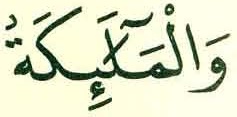 وَالْمَلَآئِكَةُ